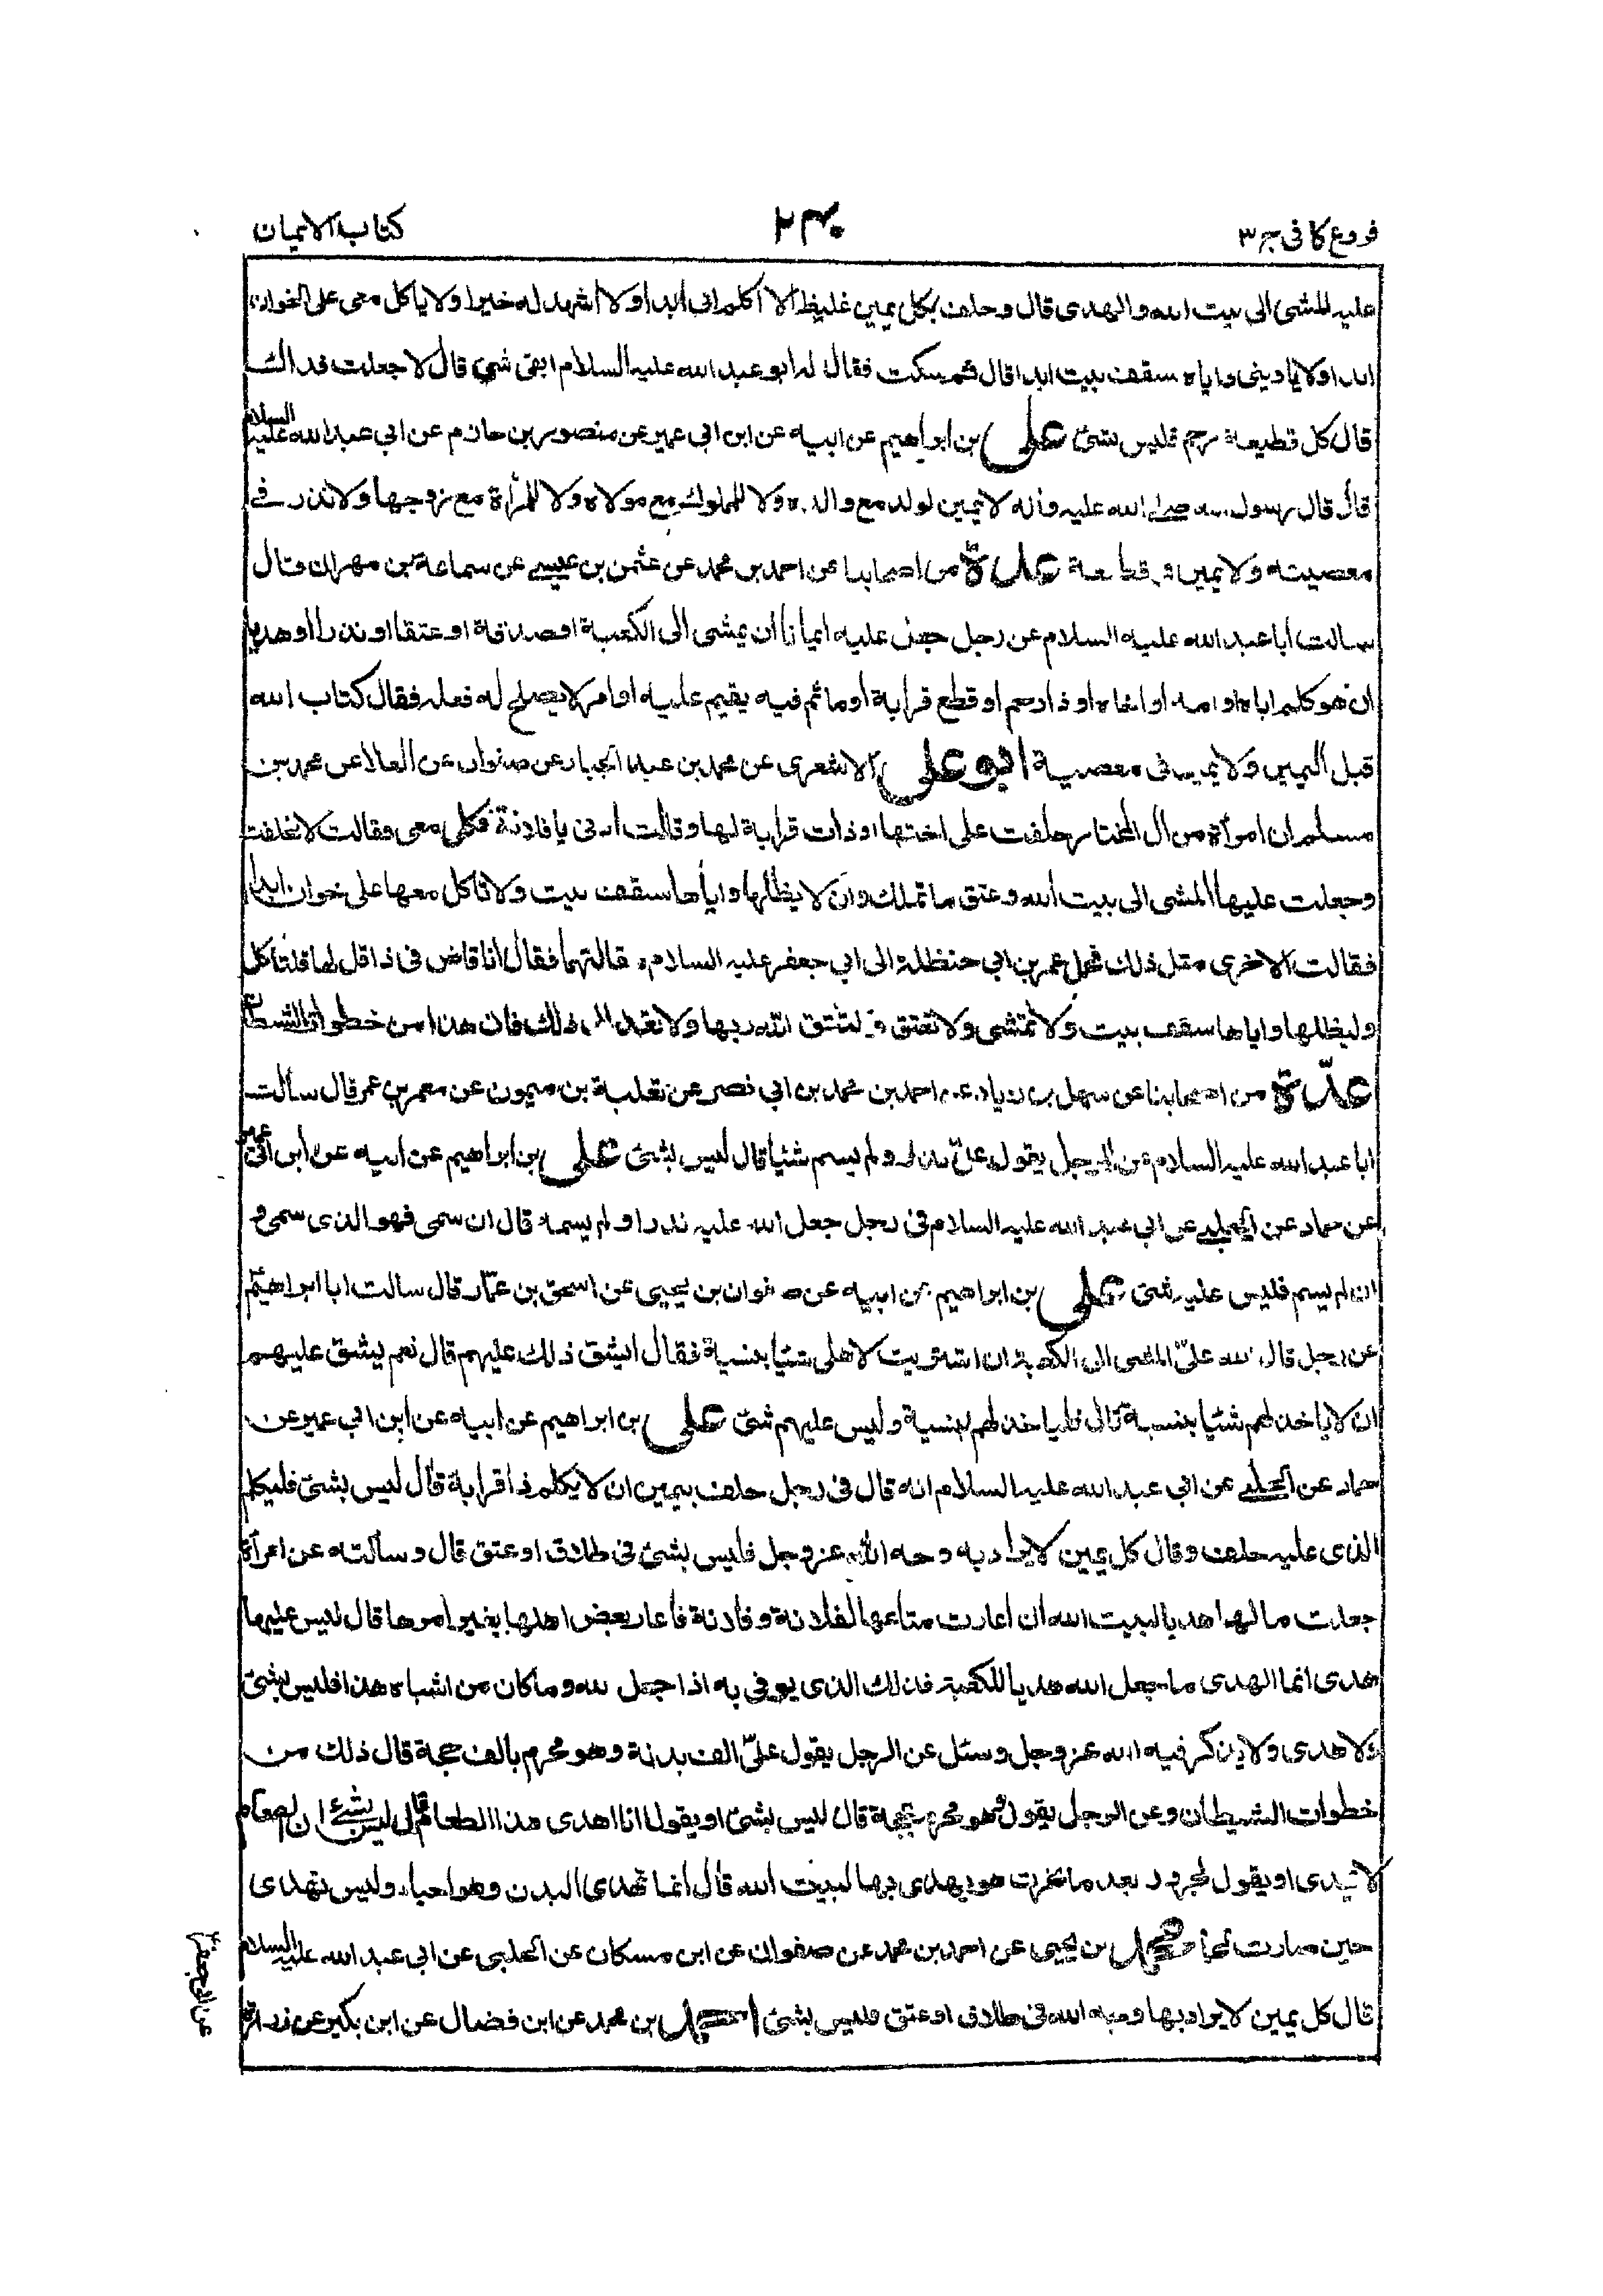 فروع كافى ج ٣
٢٣٠
كتاب الايمان
عليه المشى الى بيت الله والهدى قال وحلف بكل يمين غليظ الا اكلم ابى ابدا ولا اشهد له خيرا ولا ياكل معى على الخوان
ابدا ولا ياوينى واياه سقف بيت ابدا قال ثم سكت فقال له ابو عبد الله عليه السلام ابقى شئ قال لا جعلت فداك
قال كل قطيعة رحم فليس بشئ على بن ابراهيم عن ابيه عن ابن ابى عمير عن منصور بن حازم عن ابى عبد الله عليه السلام
قال قال رسول الله صلى الله عليه وأله لا يمين لولد مع والده ولا للمملوك مع مولاه ولا للمرأة مع زوجها ولا نذر فى
معصيته ولا يمين فى قطيعة عدة من اصحابنا عن احمد بن محمد عن عثمن بن عيسى عن سماعة بن مهران قال
سالت أبا عبد الله عليه السلام عن رجل جعل عليه ايمانا أن يمشى الى الكعبة او صدقة او عتقا او نذرا او هديا
ان هو كلم اباه او امه او اخاه او ذا رحم او قطع قرابة أو مأثم فيه يقيم عليه او امر لا يصلح له فعله فقال كتاب الله
قبل اليمين ولا يمين فى معصية ابو على الاشعرى عن محمد بن عبد الجبار عن صفوان عن العلا عن محمد بن
مسلم ان امرأة من ال المختار حلفت على اختها او ذات قرابة لها وقالت ادنى يا فلانة فكلى معى فقالت لا فحلفت
وجعلت عليها المشى الى بيت الله وعتق ما تملك وان لا يظلها واياها سقف بيت ولا تاكل معها على خوان ابدا
فقالت الاخرى مثل ذلك فحمل عمر بن ابى حنظلة الى ابى جعفر عليه السلام مقالتهما فقال انا قاض فى ذا قل لها فلتاكل
وليظلها واياها سقف بيت ولا تمشى ولا تعتق ولتتق الله ربها ولا تعد الى ذلك فان هذا من خطوات الشيطان
عدّة من اصحابنا عن سهل بن زياد عن احمد بن محمد بن ابى نصر عن ثعلبة بن ميمون عن معمر بن عمر قال سألت
ابا عبد الله عليه السلام عن الرجل يقول علىّ نذر ولم يسم شيئا قال ليس بشئ على بن ابراهيم عن ابيه عن ابن ابى عمير
عن حماد عن الحلبى عن ابى عبد الله عليه السلام فى رجل جعل الله عليه نذرا ولم يسمه قال ان سمى فهو الذى سمى و
ان لم يسم فليس عليه شئ على بن ابراهيم عن ابيه عن صفوان بن يحيى عن اسحق بن عمّار قال سالت ابا ابراهيم
عن رجل قال لله علىّ المشى الى الكعبة ان اشتريت لاهلى شيئا بنسية فقال ايشق ذلك عليهم قال نعم يشق عليهم
ان لا ياخذ لهم شيئا بنسية قال فلياخذ لهم بنسية وليس عليهم شئ على بن ابراهيم عن ابيه عن ابن ابى عمير عن
حماد عن الحلبى عن ابى عبد الله عليه السلام انه قال فى رجل حلف بيمين ان لا يكلم ذا قرابة قال ليس بشئ فليكلم
الذى عليه حلف وقال كل يمين لا يراد به وجه الله عز وجل فليس بشئ فى طلاق او عتق قال وسألته عن امرأة
جعلت مالها هديا لبيت الله ان أعارت متاعها لفلانة وفلانة فأعار بعض اهلها بغير امرها قال ليس عليها
هدى انما الهدى ما جعل الله هديا للكعبة فذلك الذى يوفى به اذا جعل لله وما كان من اشباه هذا فليس بشئ
ولا هدى ولا يذكر فيه الله عز وجل وسئل عن الرجل يقول علىّ الف بدنة وهو محرم بالف حجة قال ذلك من
خطوات الشيطان وعن الرجل يقول وهو محرم بحجة قال ليس بشئ او يقول انا اهدى هذا الطعام قال ليس بشئ ان الطعام
لا يهدى او يقول لجزور بعد ما نحرت هو يهدى بها لبيت الله قال انما تهدى البدن وهو احياء وليس تهدى
حين صارت لحما محمد بن يحيى عن احمد بن محمد عن صفوان عن ابن مسكان عن الحلبى عن ابى عبد الله عليه السلام
قال كل يمين لا يراد بها وجه الله فى طلاق او عتق فليس بشئ احمد بن محمد عن ابن فضال عن ابن بكير عن زرارة
عن ابى جعفر